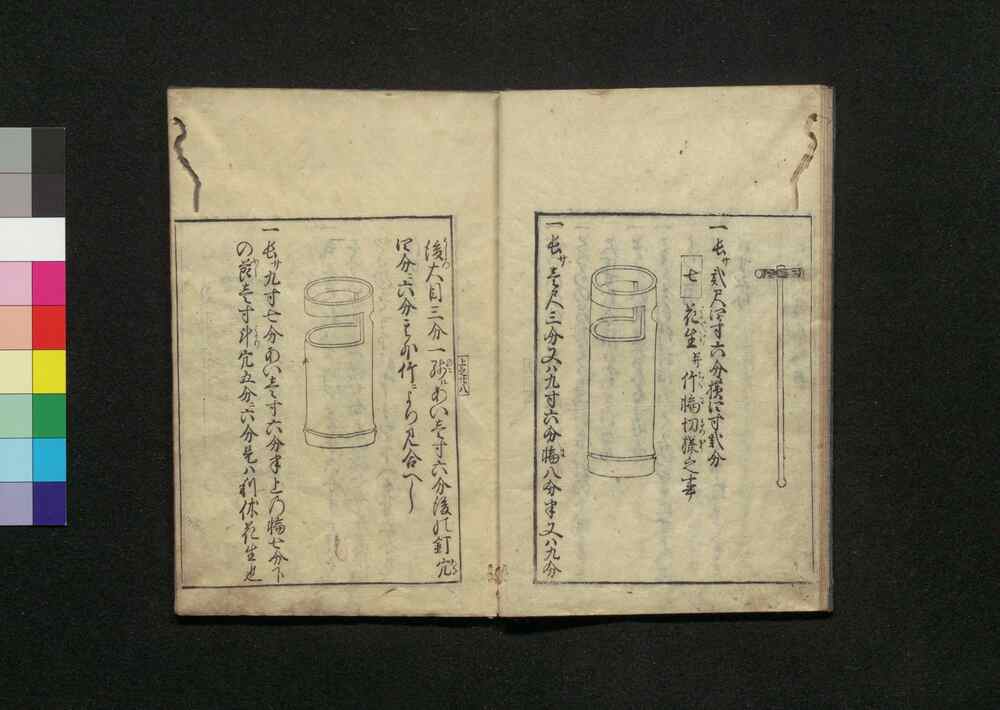 一 長サ弐尺四寸六分横四寸弐分
七 花生并竹輪切様之事
一 長サ壱尺三分又ハ九寸六分輪八分半又ハ九分
後大目三分一残あい壱寸六分後の釘穴
四分六分也竹により見合へし
一 長サ九寸七分あい壱寸六分半上乃輪七分下
の節壱寸斗穴五分六分是ハ利休花生也